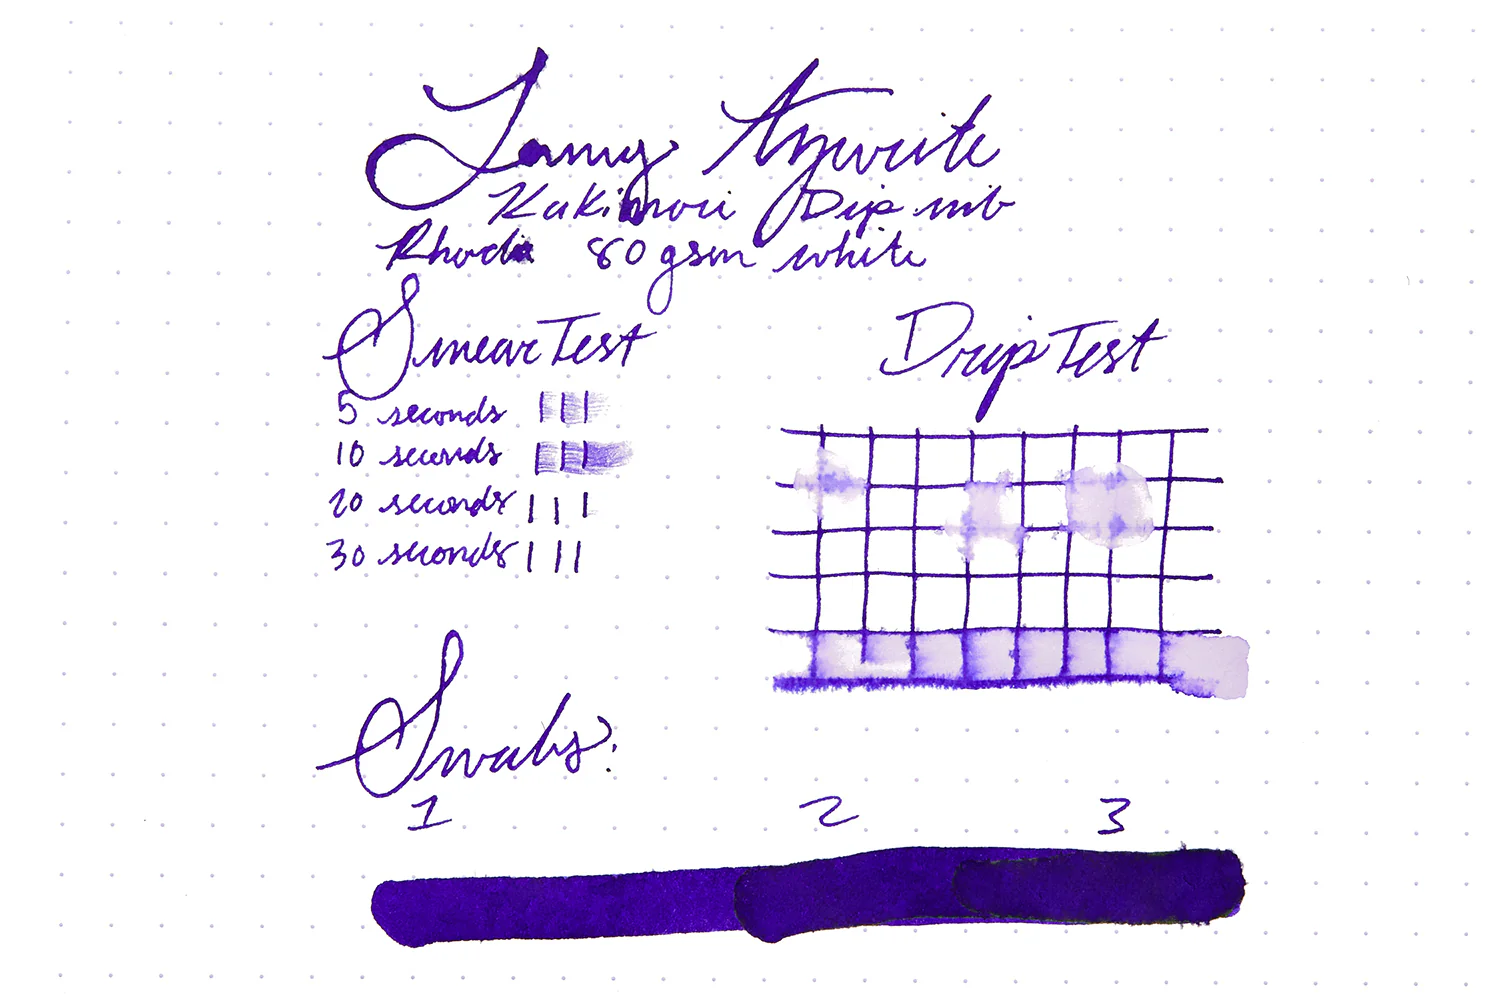 Lamy Azurite
Kakimori Dip nib
Rhodia 80 gsm white
Smear Test
5 seconds
10 seconds
20 seconds
30 seconds
Drip Test
Swabs:
1 2 3